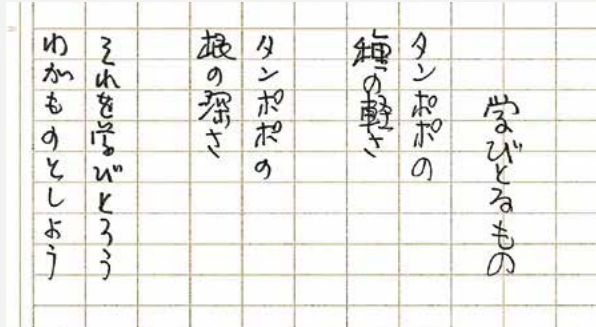 学びとるもの
タンポポの
種の軽さ
タンポポの
根の深さ
それを学びとろう
わがものとしよう